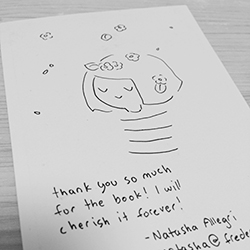 thank you so much
for the book! I will
cherish it forever!
-Natasha Allegri
natasha@frede